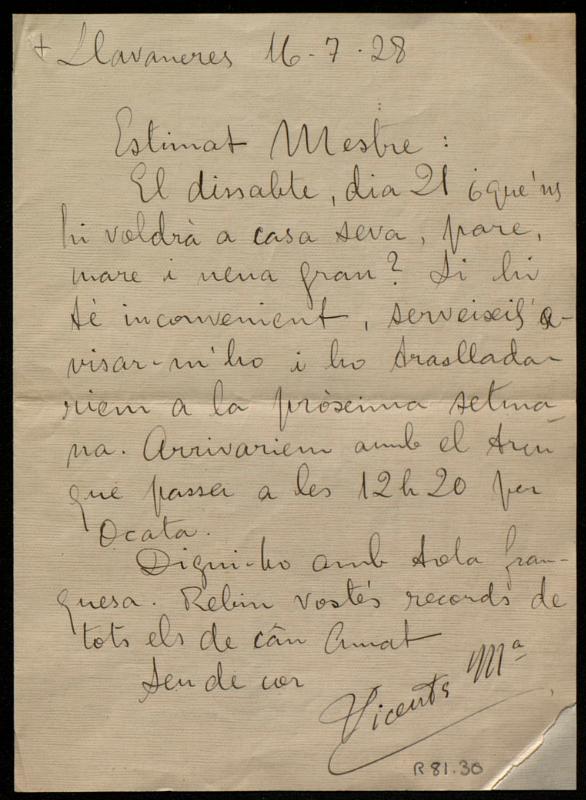 + Llavaneres 16-7-28
Estimat Mestre:
El dissabte, dia 21 ¿qué'ns
hi voldrà a casa seva, pare,
mare i nena gran? Si hi
té inconvenient, serveixis a-
visar-m'ho i ho traslladar-
riem a la pròxima setma-
na. Arrivariem amb el tren
que passa a les 12 h 20 per
Ocata.
Digui-ho amb tota fran-
quesa. Rebin vostés records de
tots els de cân Amat
Seu de cor
Vicents Mª
R 81.30